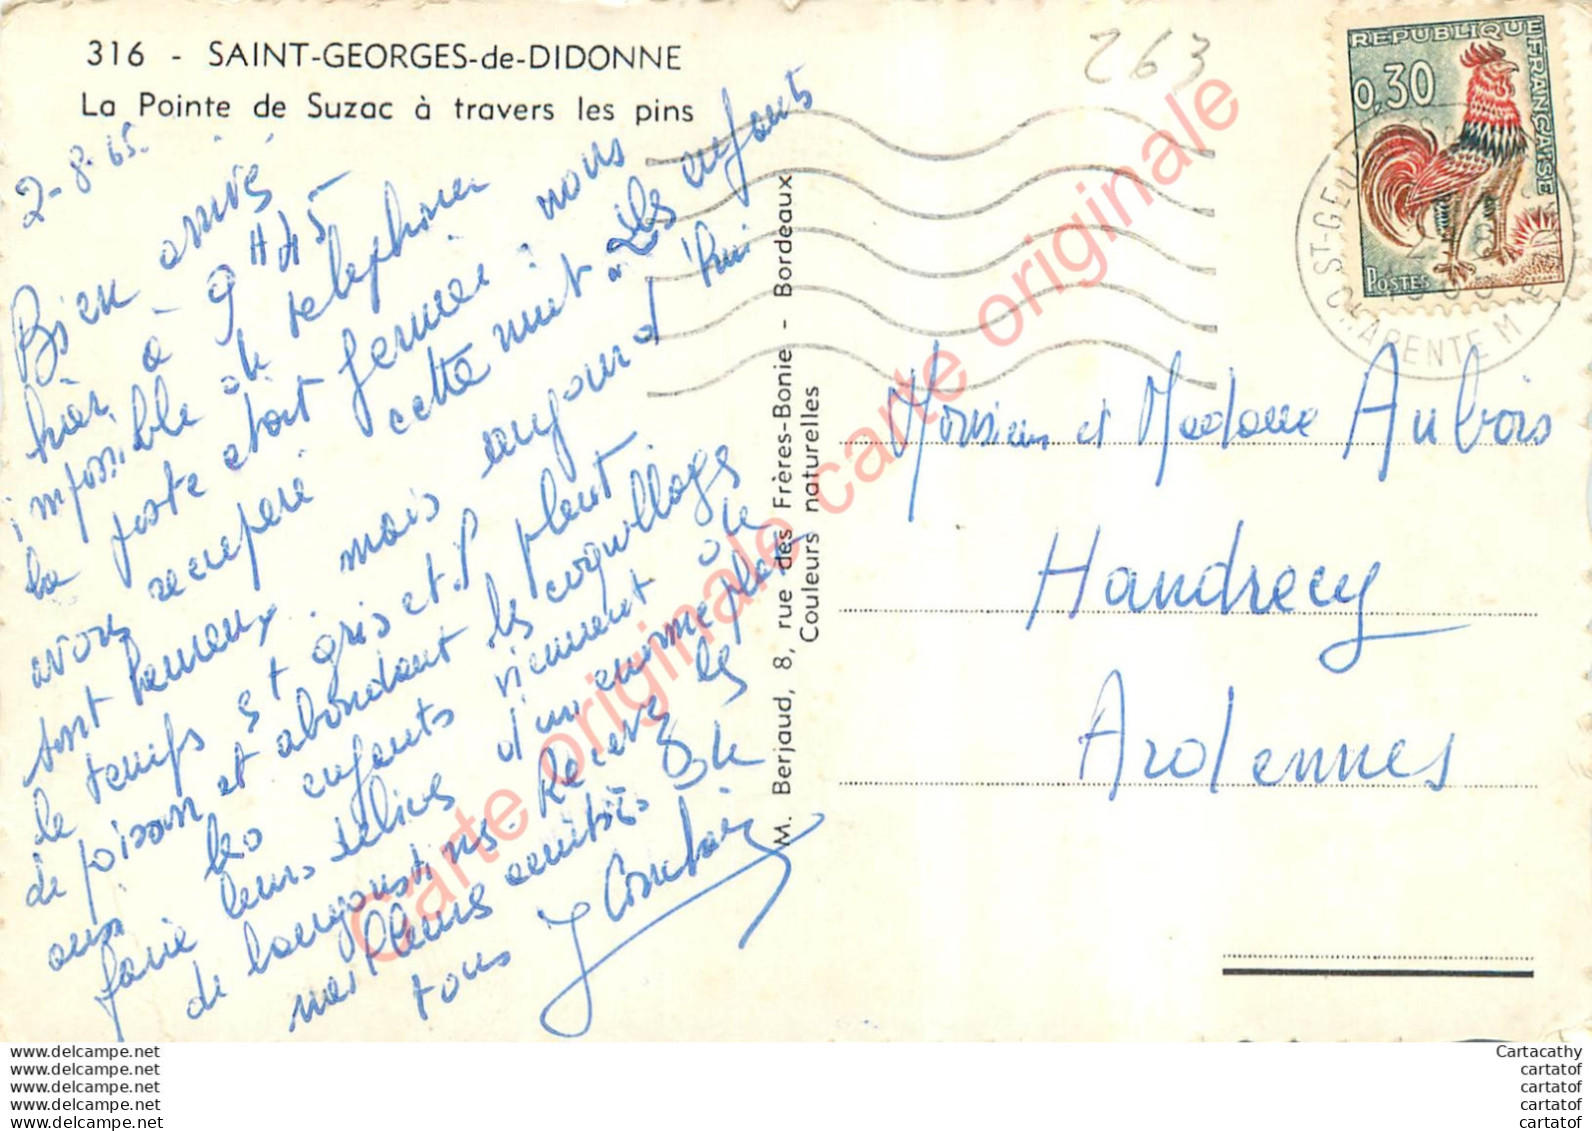 316 - SAINT-GEORGES-de-DIDONNE
La Pointe de Suzac à travers les pins
2-8-65.
Bien arrivé
hier à 9H45
impossible de telephoner
la poste etait fermée nous
avons recuperé cette nuit. Les enfants
sont heureux mais aujourd'hui
le temps est gris et il pleut
de poison et abondant les coquillages
aussi les enfants viennent de
faire leurs delices d'un enorme plat
de langoustines. Recevez les
meilleures amitiés de
tous
263
REPUBLIQUE FRANÇAISE
0,30
POSTES
ST-GEORGES
CHARENTE Mme
M. Berjaud, 8, rue des Frères-Bonie - Bordeaux
Couleurs naturelles
Monsieur et Madame Aubois
Handrecy
Ardennes
Carte originale carte originale carte originale
www.delcampe.net
www.delcampe.net
www.delcampe.net
www.delcampe.net
www.delcampe.net
Cartacathy
cartatof
cartatof
cartatof
cartatof